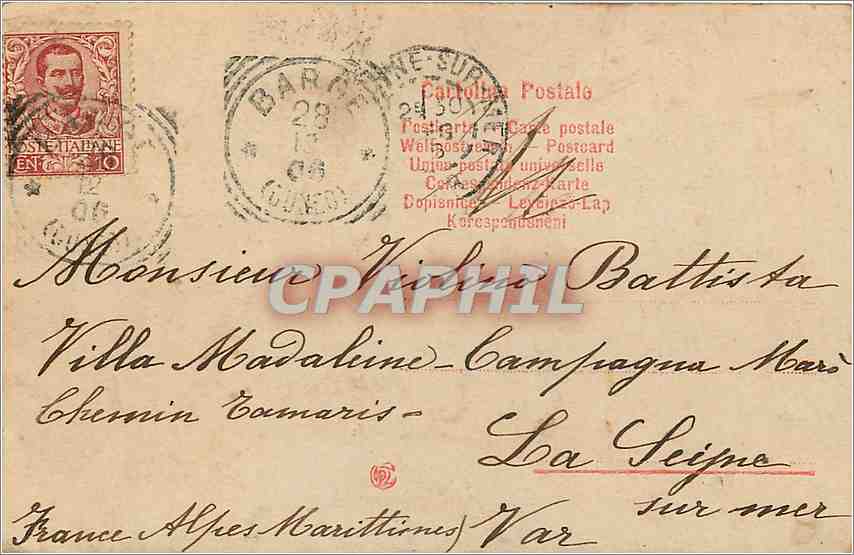 POSTE ITALIANE
CEN. 10
BARGE
28
12
06
(CUNEO)
BARGE
12
06
(CUNEO)
SEYNE-SUR-MER
30
Cartolina Postale
Postkarte - Carte postale
Weltpostverein - Postcard
Union postale universelle
Correspondenz-Karte
Dopisnice - Levelező-Lap
Korespondencni
Monsieur Violino Battista
CPAPHIL
Villa Madaleine - Campagna Marò
Chemin Tamaris -
La Seigne
sur mer
France Alpes Marittiones) Var